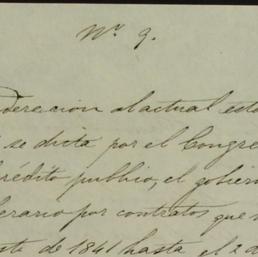 Nº 9.
deracion al actual esta
se dicta por el Congre
crédito publio, el gobier
erario por contratos que
de 1841 hasta el 2 d